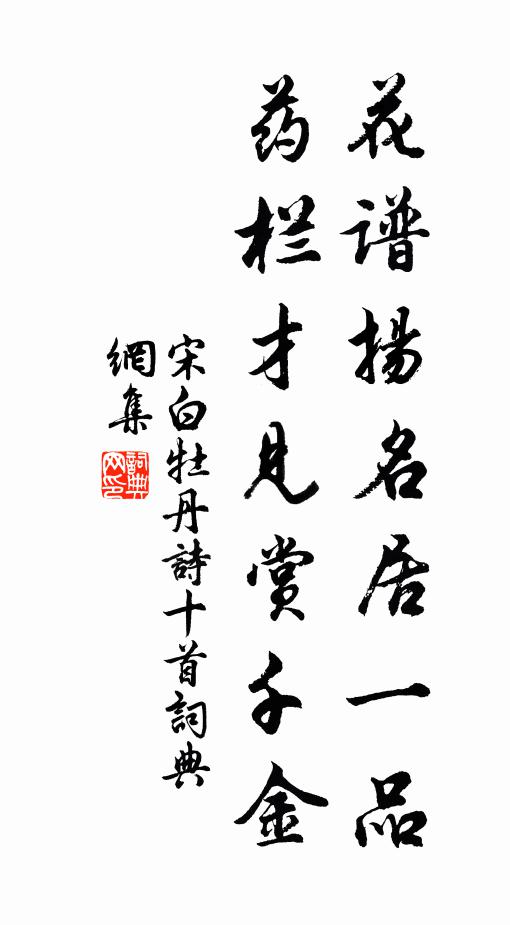 花谱揚名居一品
药栏才見赏千金
宋白牡丹詩十首詞典
網集
詞典网印